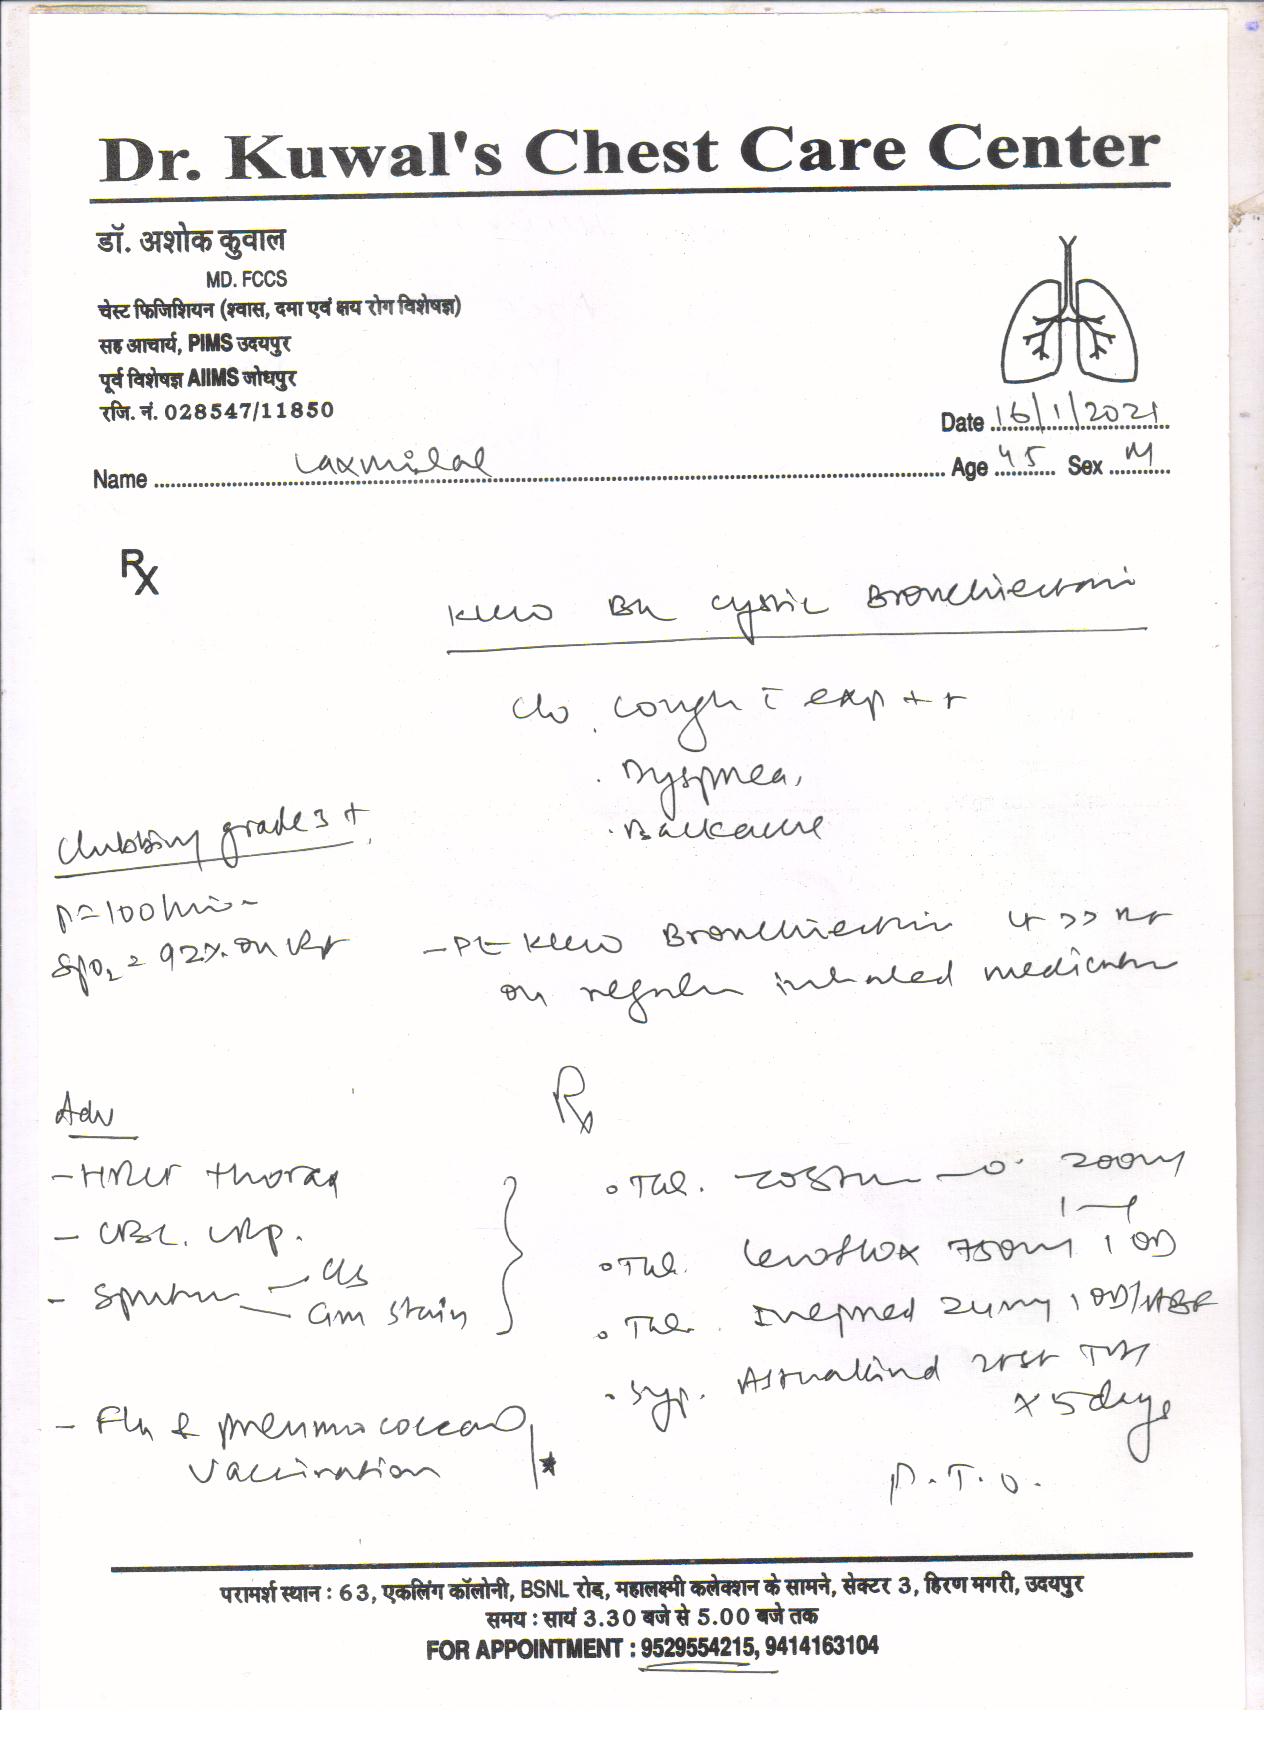 Dr. Kuwal's Chest Care Center
डॉ. अशोक कुवाल
MD. FCCS
चेस्ट फिजिशियन (श्वास, दमा एवं क्षय रोग विशेषज्ञ)
सह आचार्य, PIMS उदयपुर
पूर्व विशेषज्ञ AIIMS जोधपुर
रजि. नं. 028547/11850
Date 16/1/2021
Name Laxmilal Age 45 Sex M
Rx
cystic Bronchiectasis
c/o cough c̄ exp ++
. Dyspnea,
. Backache
Clubbing grade 3 +
P=100/min
SpO2 = 92% on
- Pt Bronchiectasis
on regular inhaled medication
Rx
Adv
- HRCT thorax
- CBC, CRP.
- Sputum - C/S
- Gm stain
- Flu & pneumococcal
Vaccination
• Tab. 200mg
1-1
• Tab. Levoflox 750mg 1 OD
• Tab. 24mg 1 OD
• Syp. 2tsf TDS
x 5 days
P.T.O.
परामर्श स्थान : 63, एकलिंग कॉलोनी, BSNL रोड, महालक्ष्मी कलेक्शन के सामने, सेक्टर 3, हिरण मगरी, उदयपुर
समय : सायं 3.30 बजे से 5.00 बजे तक
FOR APPOINTMENT : 9529554215, 9414163104